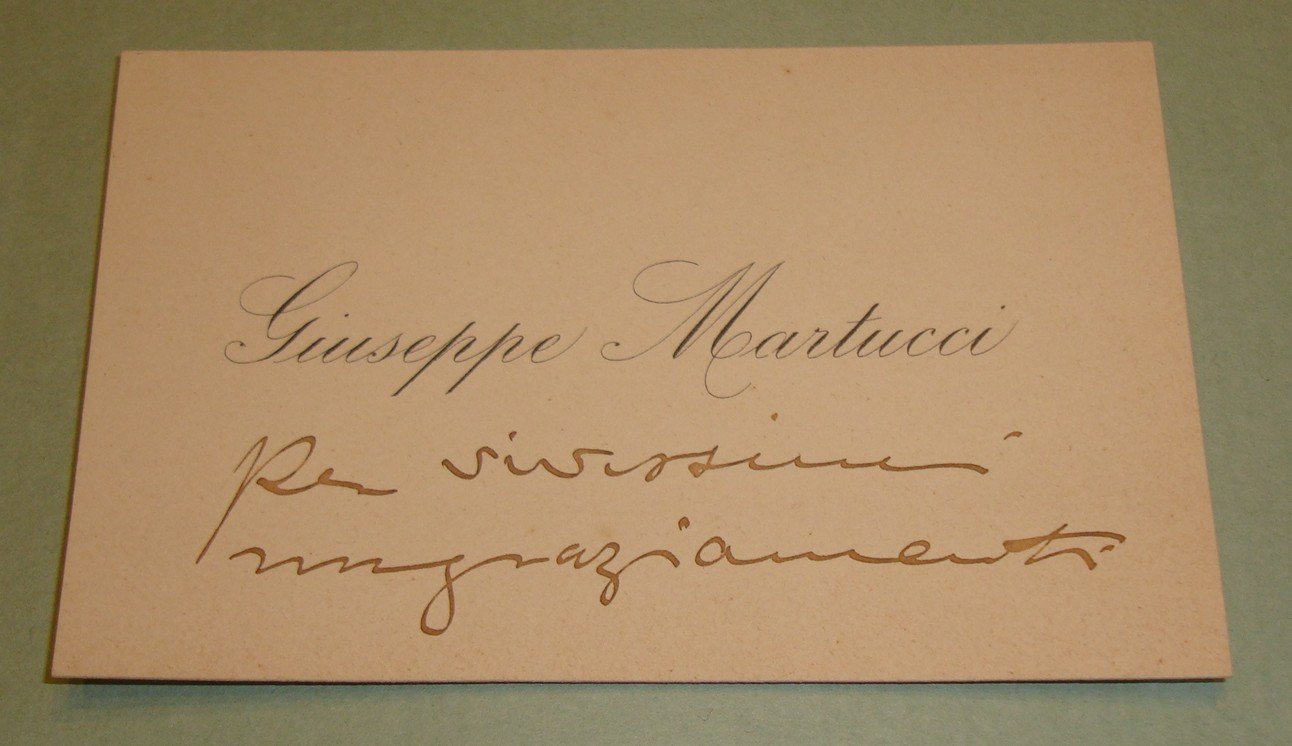 Giuseppe Martucci
Per vivissimi
ringraziamenti